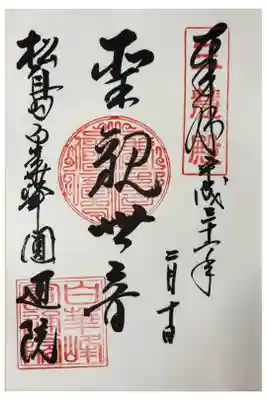 奉拝
平成三十一年
二月十日
聖観世音
松島白華峰圓通院
白華峰
圓通院